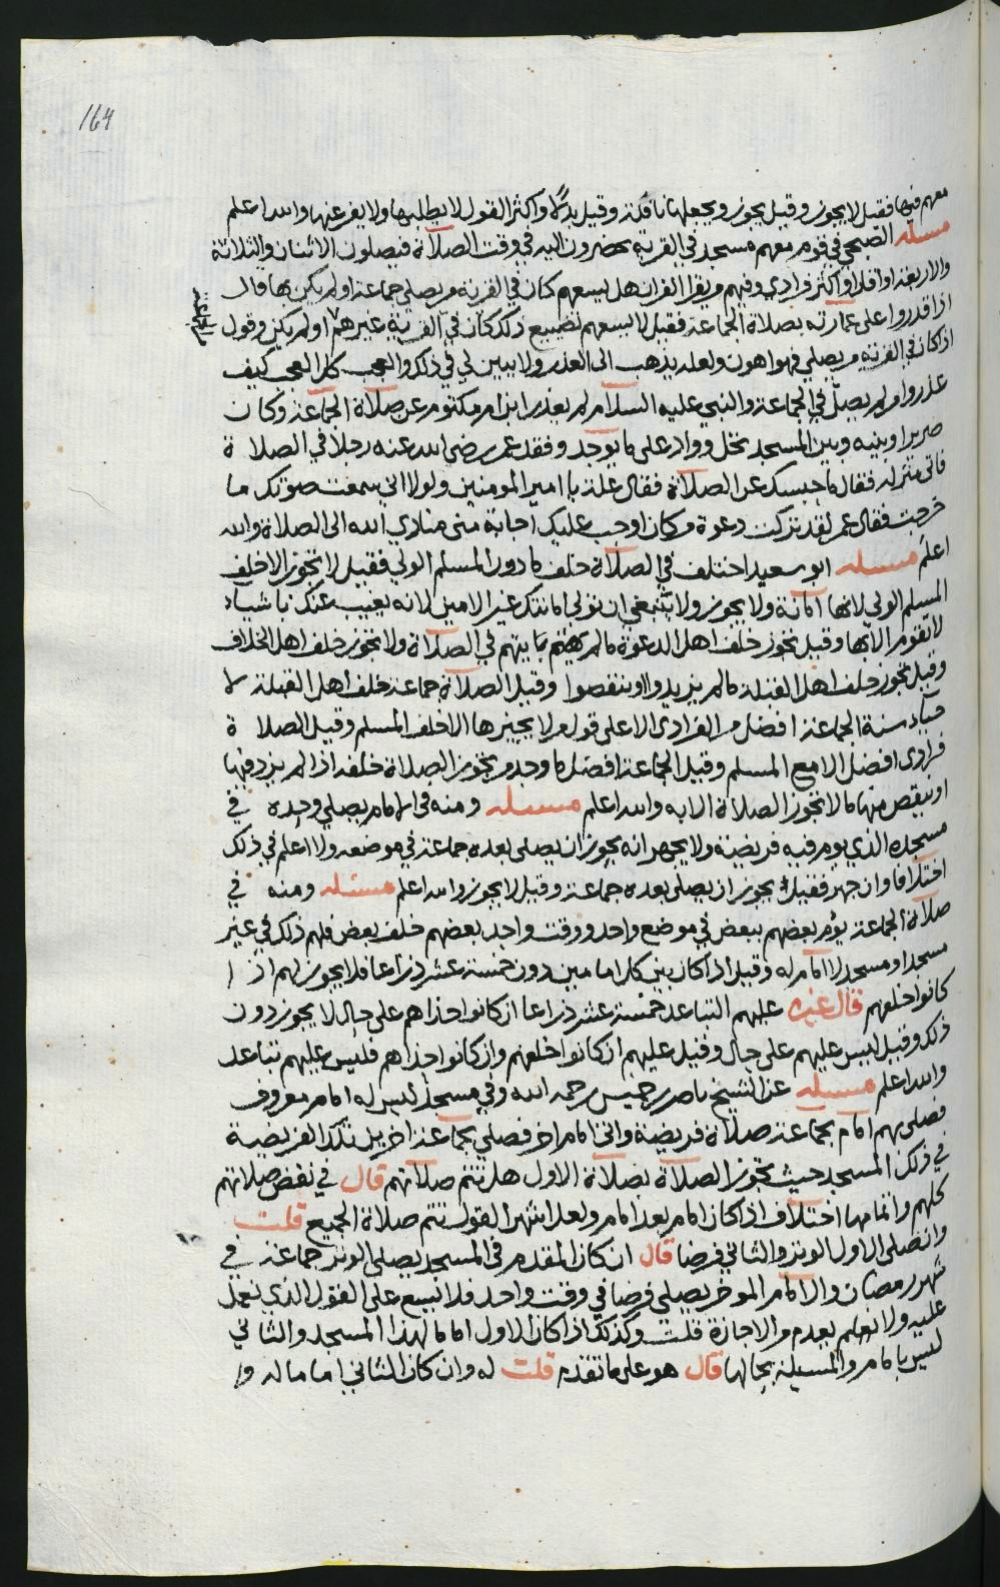 164
معهم فيها فقيل لا يجوز وقيل يجوز ويجعلها نافلة وقيل بدلا واكثر القول لا يطلبها ولا يفر عنها والله اعلم
مسئلة الصبحي في قوم معهم مسجد في القرية يحضرون اليه في وقت الصلاة فيصلون الاثنان والثلاثة
والاربعة او اقل او اكثر فرادى وفيهم من يقرا القران هل يسعهم كان في القرية من يصلي جماعة او لم يكن بها قال
اذا قدروا على عمارته بصلاة الجماعة فقيل لا يسعهم تضييع ذلك كان في القرية غيرهم او لم يكن وقول
اذا كان في القرية من يصلي فهو اهون ولعله يذهب الى العذر ولا يبين لي في ذلك والعجب كل العجب كيف
عذروا من لم يصل في الجماعة والنبي عليه السلام لم يعذر ابن ام مكتوم عن صلاة الجماعة وكان
ضريرا وبينه وبين المسجد نخل وواد على ما يوجد وفقد عمر رضي الله عنه رجلا في الصلاة
فاتى منزله فقال ما حبسك عن الصلاة فقال علة يا امير المومنين ولولا اني سمعت صوتك ما
خرجت فقال عمر لقد تركت دعوة من كان اوجب عليك اجابة مني منادي الله الى الصلاة والله
اعلم مسئلة ابو سعيد اختلف في الصلاة خلف ما دون المسلم الولي فقيل لا تجوز الا خلف
المسلم الولي لانها امانة ولا يجوز ولا ينبغي ان تولي امانتك غير الامين لانه يغيب عنك باشياء
لا تقوم الا بها وقيل تجوز خلف اهل الدعوة ما لم يتهم بما يتهم في الصلاة ولا تجوز خلف اهل الخلاف
وقيل تجوز خلف اهل القبلة ما لم يزيدوا او ينقصوا وقيل الصلاة جماعة خلف اهل القبلة لا
سنة الجماعة افضل من الفرادى الا على قول من لا يجيزها الا خلف المسلم وقيل الصلاة
فرادى افضل الا مع المسلم وقيل الجماعة افضل ما وجد من تجوز الصلاة خلفه اذا لم يزد فيها
او ينقص منها ما لا تجوز الصلاة الا به والله اعلم مسئلة ومنه في الامام يصلي وحده في
مسجده الذي يوم فيه فريضة ولا يجهر انه يجوز ان يصلي بعده جماعة في موضعه ولا اعلم في ذلك
اختلافا وان جهر فقيل يجوز ان يصلي بعده جماعة وقيل لا يجوز والله اعلم مسئلة ومنه في
صلاة الجماعة يؤم بعضهم ببعض في موضع واحد ووقت واحد بعضهم خلف بعض فلهم ذلك في غير
مسجد او مسجد لا امام له وقيل اذا كان بين كل امامين دون خمسة عشر ذراعا فلا يجوز لهم اذا
كانوا خلفهم قال غيره عليهم التباعد خمسة عشر ذراعا ان كانوا حذاهم على حال لا يجوز دون
ذلك وقيل ليس عليهم على حال وقيل عليهم ان كانوا خلفهم وان كانوا حذاهم فليس عليهم تباعد
والله اعلم مسئلة عن الشيخ ناصر بن خميس رحمه الله وفي مسجد ليس له امام معروف
فصلى بهم امام بجماعة صلاة فريضة واتى امام اخر فصلى بجماعة اخرين تلك الفريضة
في ذلك المسجد حيث تجوز الصلاة بصلاة الاول هل تتم صلاتهم قال في نقض صلاتهم
كلهم واتمامها اختلاف اذا كان امام بعد امام ولعل اشهر القول تتم صلاة الجميع قلت
وان صلى الاول الوتر والثاني فرضا قال ان كان المقدم في المسجد يصلي الوتر جماعة في
شهر رمضان والامام الموخر يصلي فرضا في وقت واحد فلا يسع على القول الذي نعمل
عليه ولا نعلم بعدم الاجازة قلت وكذلك اذا كان الاول اماما لهذا المسجد والثاني
ليس بامام والمسيلة بحالها قال هو على ما تقدم قلت له وان كان الثاني اماما له وا